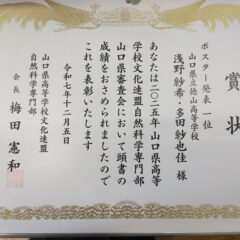 賞状
ポスター発表 一位
山口県立徳山高等学校
浅野紗希・多田紗也佳
あなたは二〇二五年山口県高等
学校文化連盟自然科学専門部
山口県審査会において頭書の
成績をおさめられましたので
これを表彰いたします
令和七年十二月五日
山口県高等学校文化連盟
自然科学専門部
会長 梅田憲和